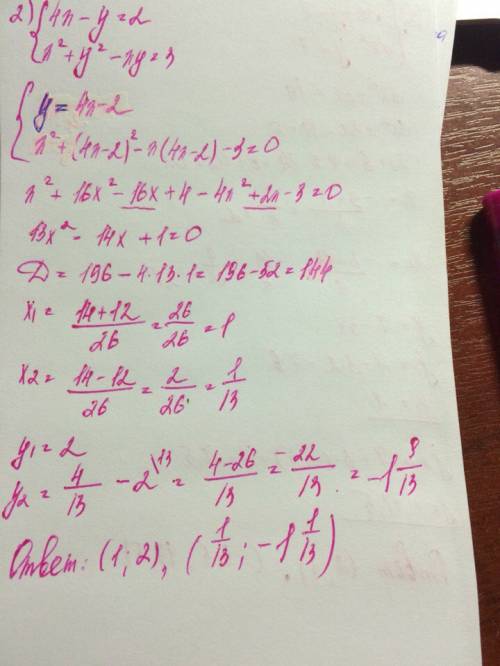 2) { 4x - y = 2
x² + y² - xy = 3
{ y = 4x - 2
x² + (4x-2)² - x(4x-2) - 3 = 0
x² + 16x² - 16x + 4 - 4x² + 2x - 3 = 0
13x² - 14x + 1 = 0
D = 196 - 4·13·1 = 196 - 52 = 144
x1 = (14+12)/26 = 26/26 = 1
x2 = (14-12)/26 = 2/26 = 1/13
y1 = 2
y2 = 4/13 - 2\13 = (4-26)/13 = 22/13 = -1 9/13
Ответ: (1; 2), (1/13; -1 1/13)